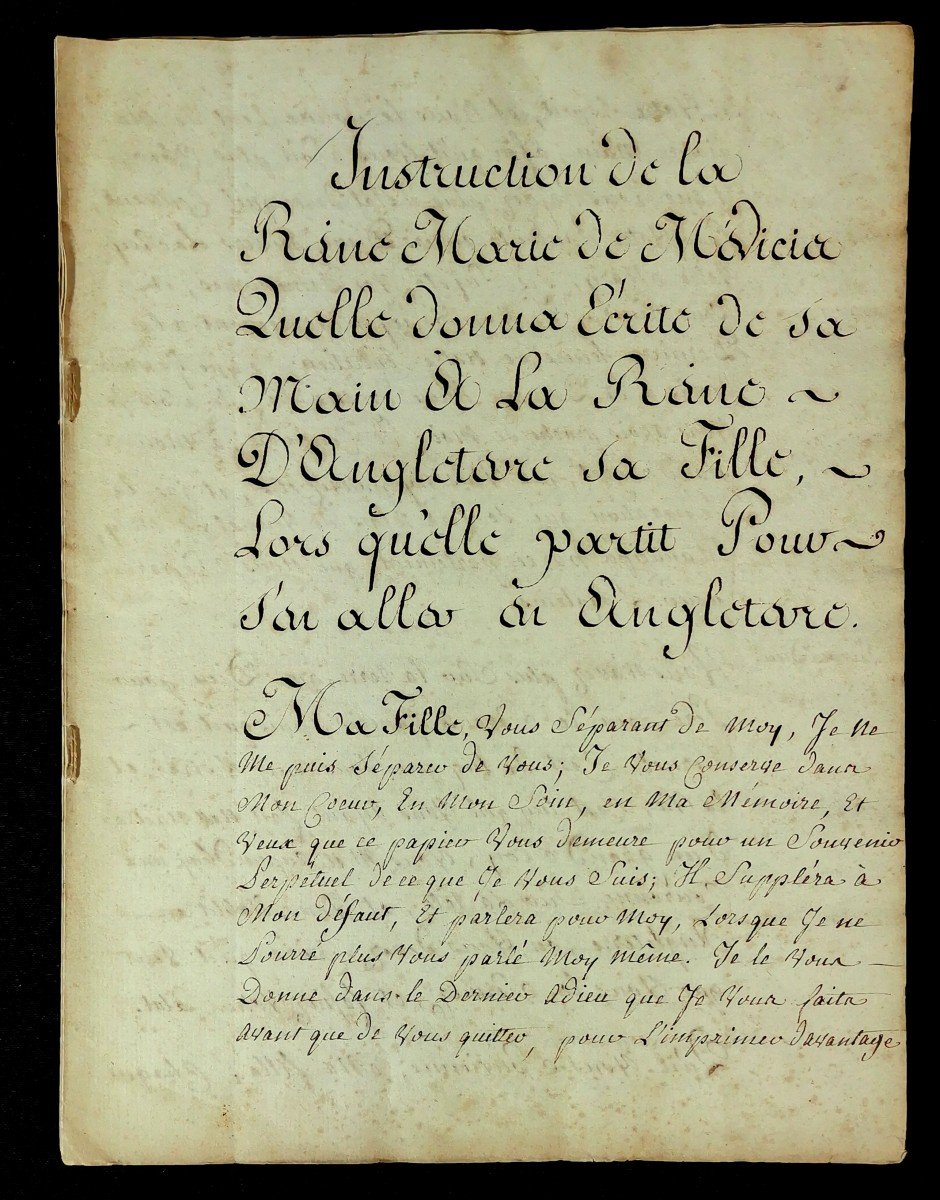 Instruction de la
Reine Marie de Médicis
Quelle donna Ecrite de sa
Main A La Reine ~
D'Angleterre sa Fille, ~
Lors qu'elle partit Pour ~
s'en aller en Angleterre.
Ma Fille, Vous Séparant de Moy, Je Ne
Me puis Séparer de Vous; Je Vous Conserve dans
Mon Coeur, En Mon Sein, en Ma Mémoire, Et
Veux que ce papier Vous demeure pour un Souvenir
Perpétuel de ce que Je Vous Suis; Il Suppléra à
Mon défaut, Et parlera pour Moy, Lorsque Je ne
Pourré plus Vous parlé Moy même. Je le Vous —
Donne dans le Dernier adieu que Je Vous faits
avant que de Vous quitter, pour L'imprimer davantage